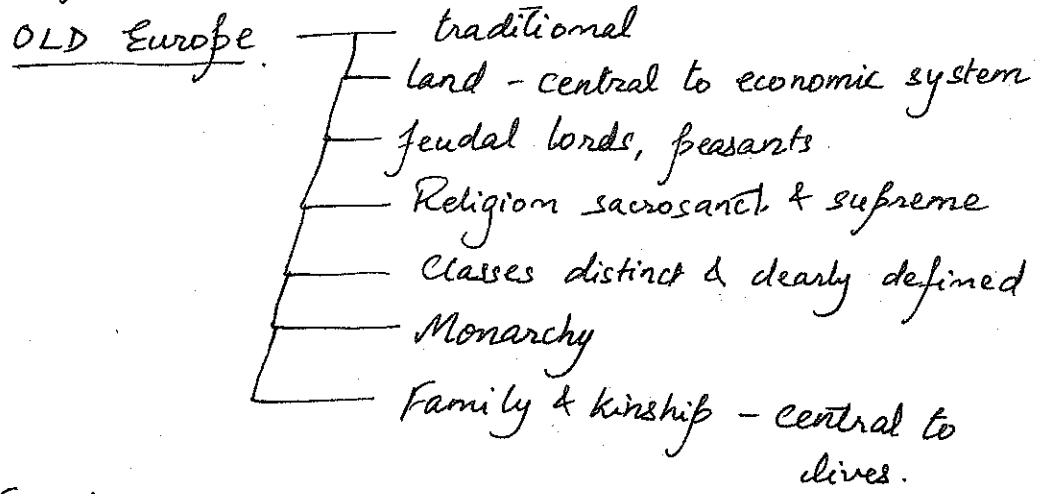 OLD Europe.
traditional
land - central to economic system
feudal lords, peasants.
Religion sacrosanct & supreme
Classes distinct & clearly defined
Monarchy
Family & kinship - central to
lives.